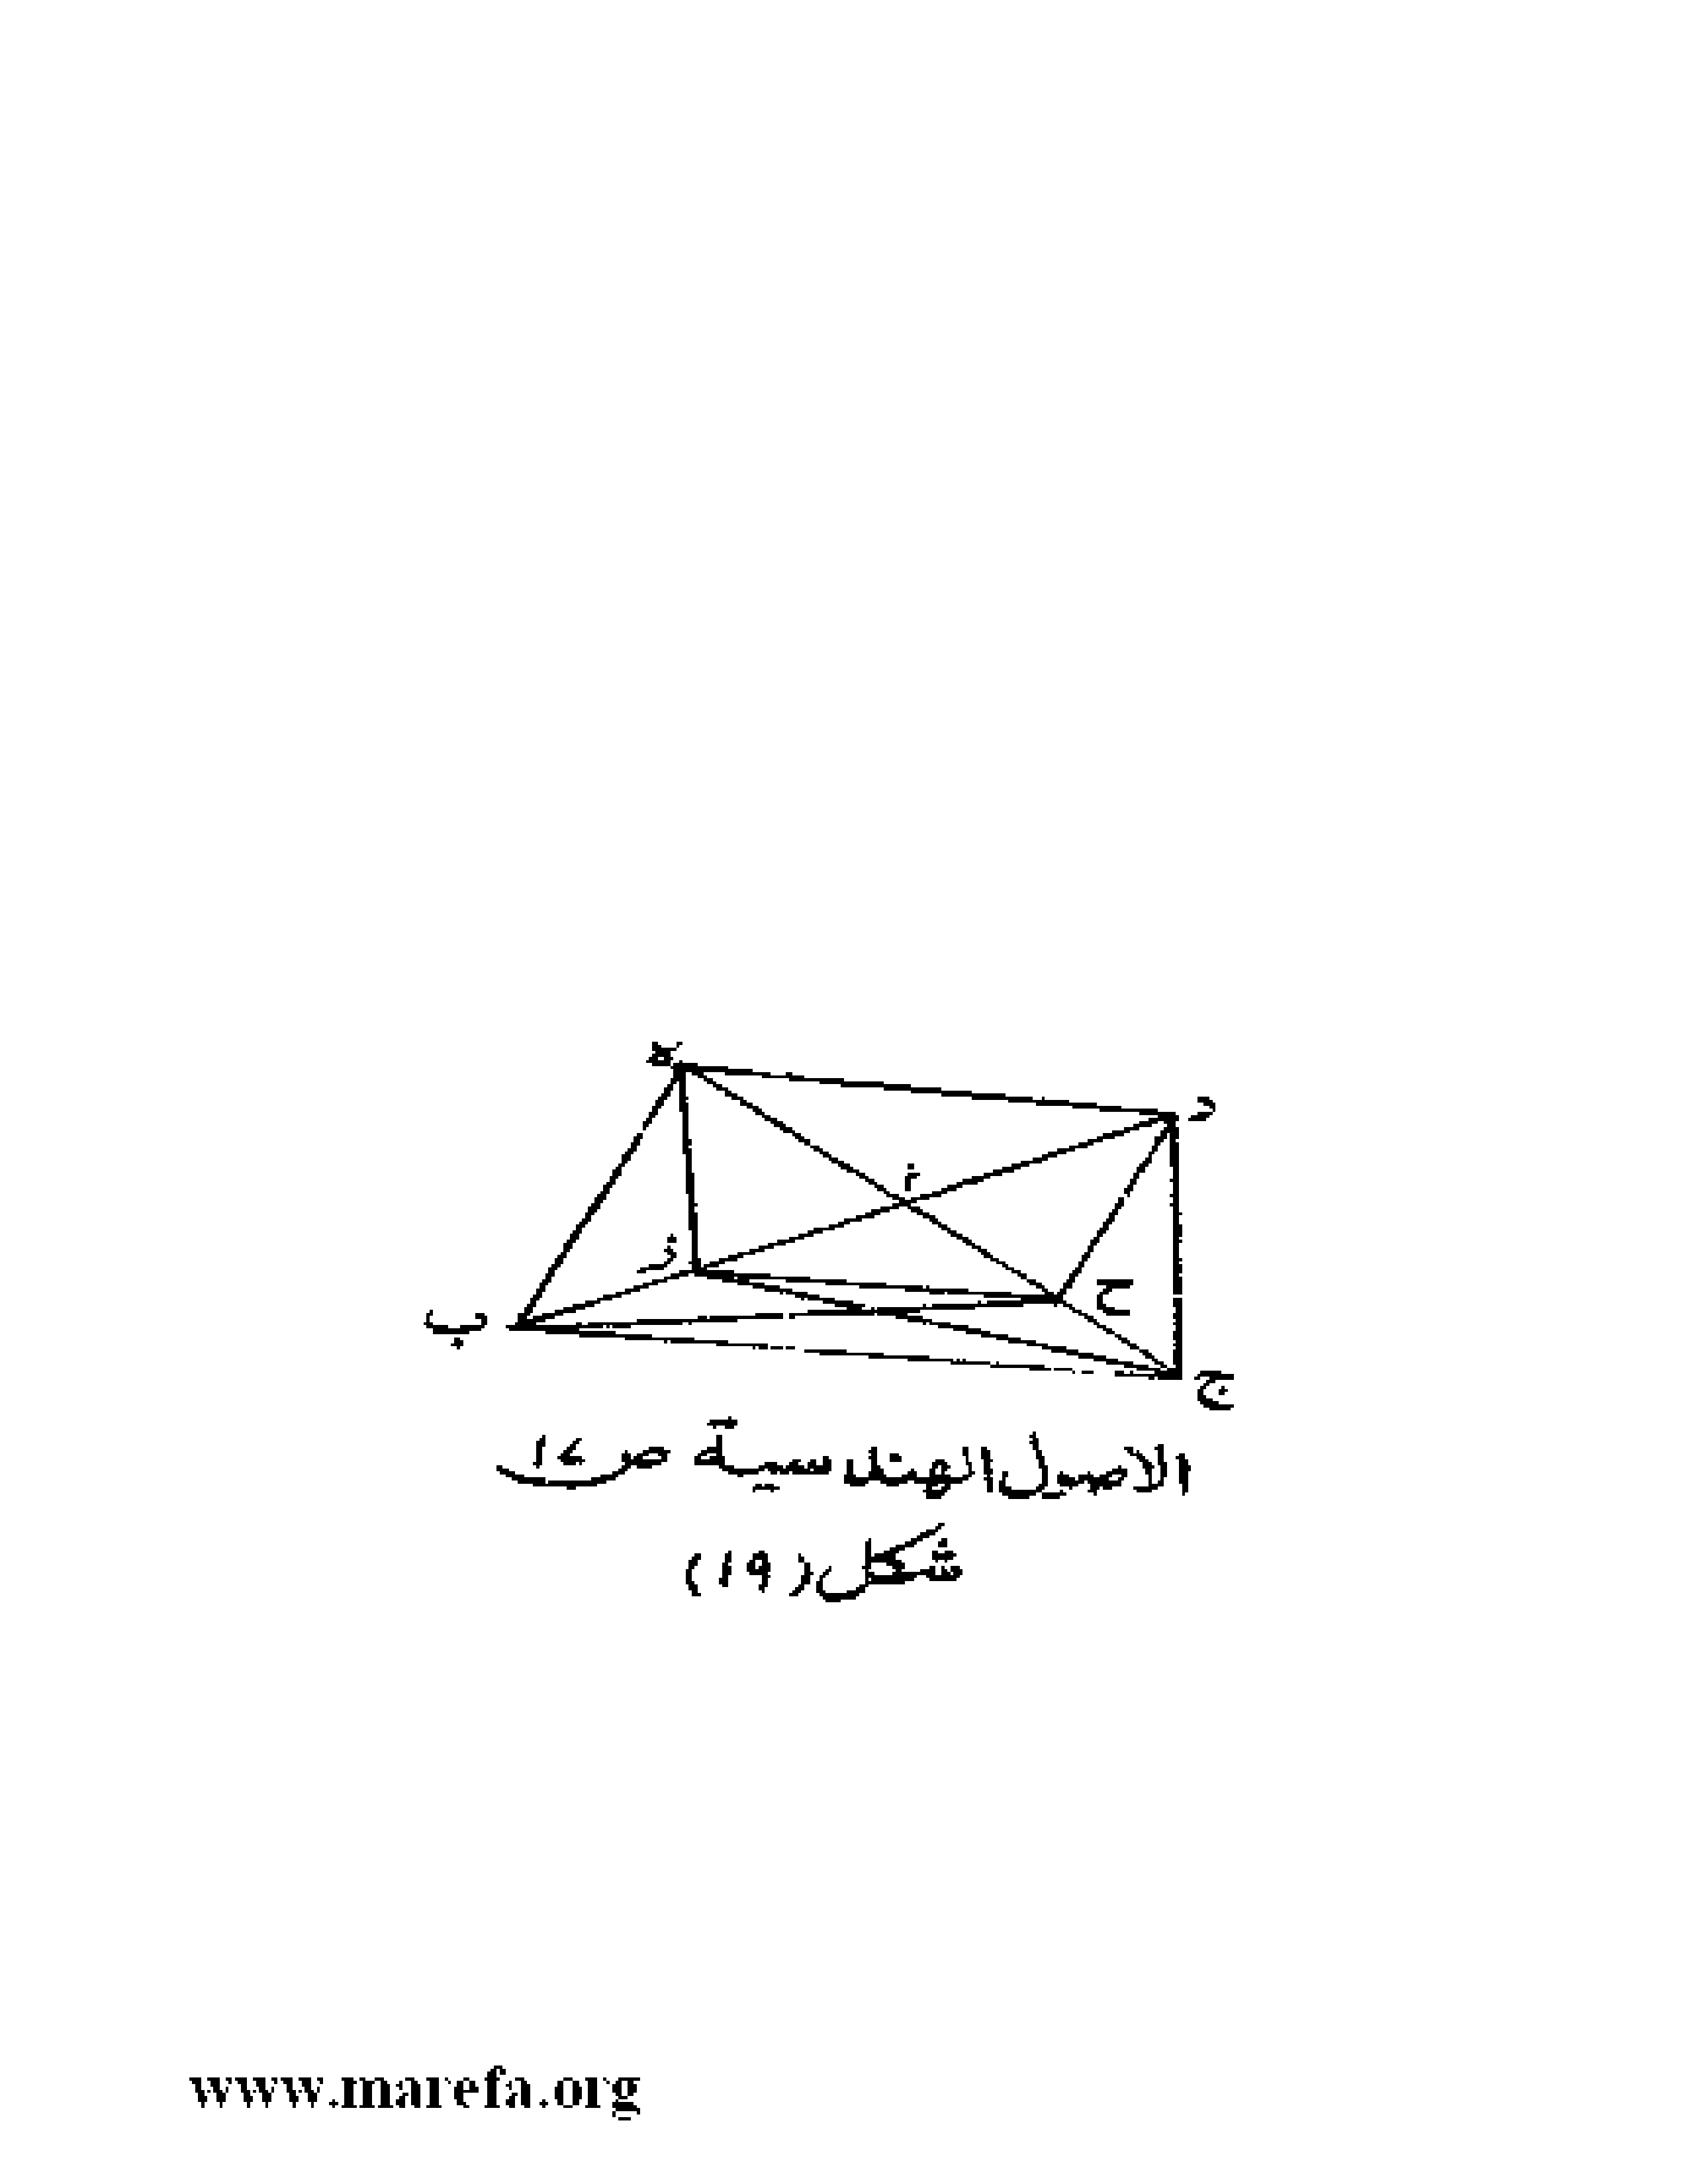 ه
د
ز
ح
ب
ج
الاصول الهندسية ص ١٤
شكل (١٩)
www.marefa.org